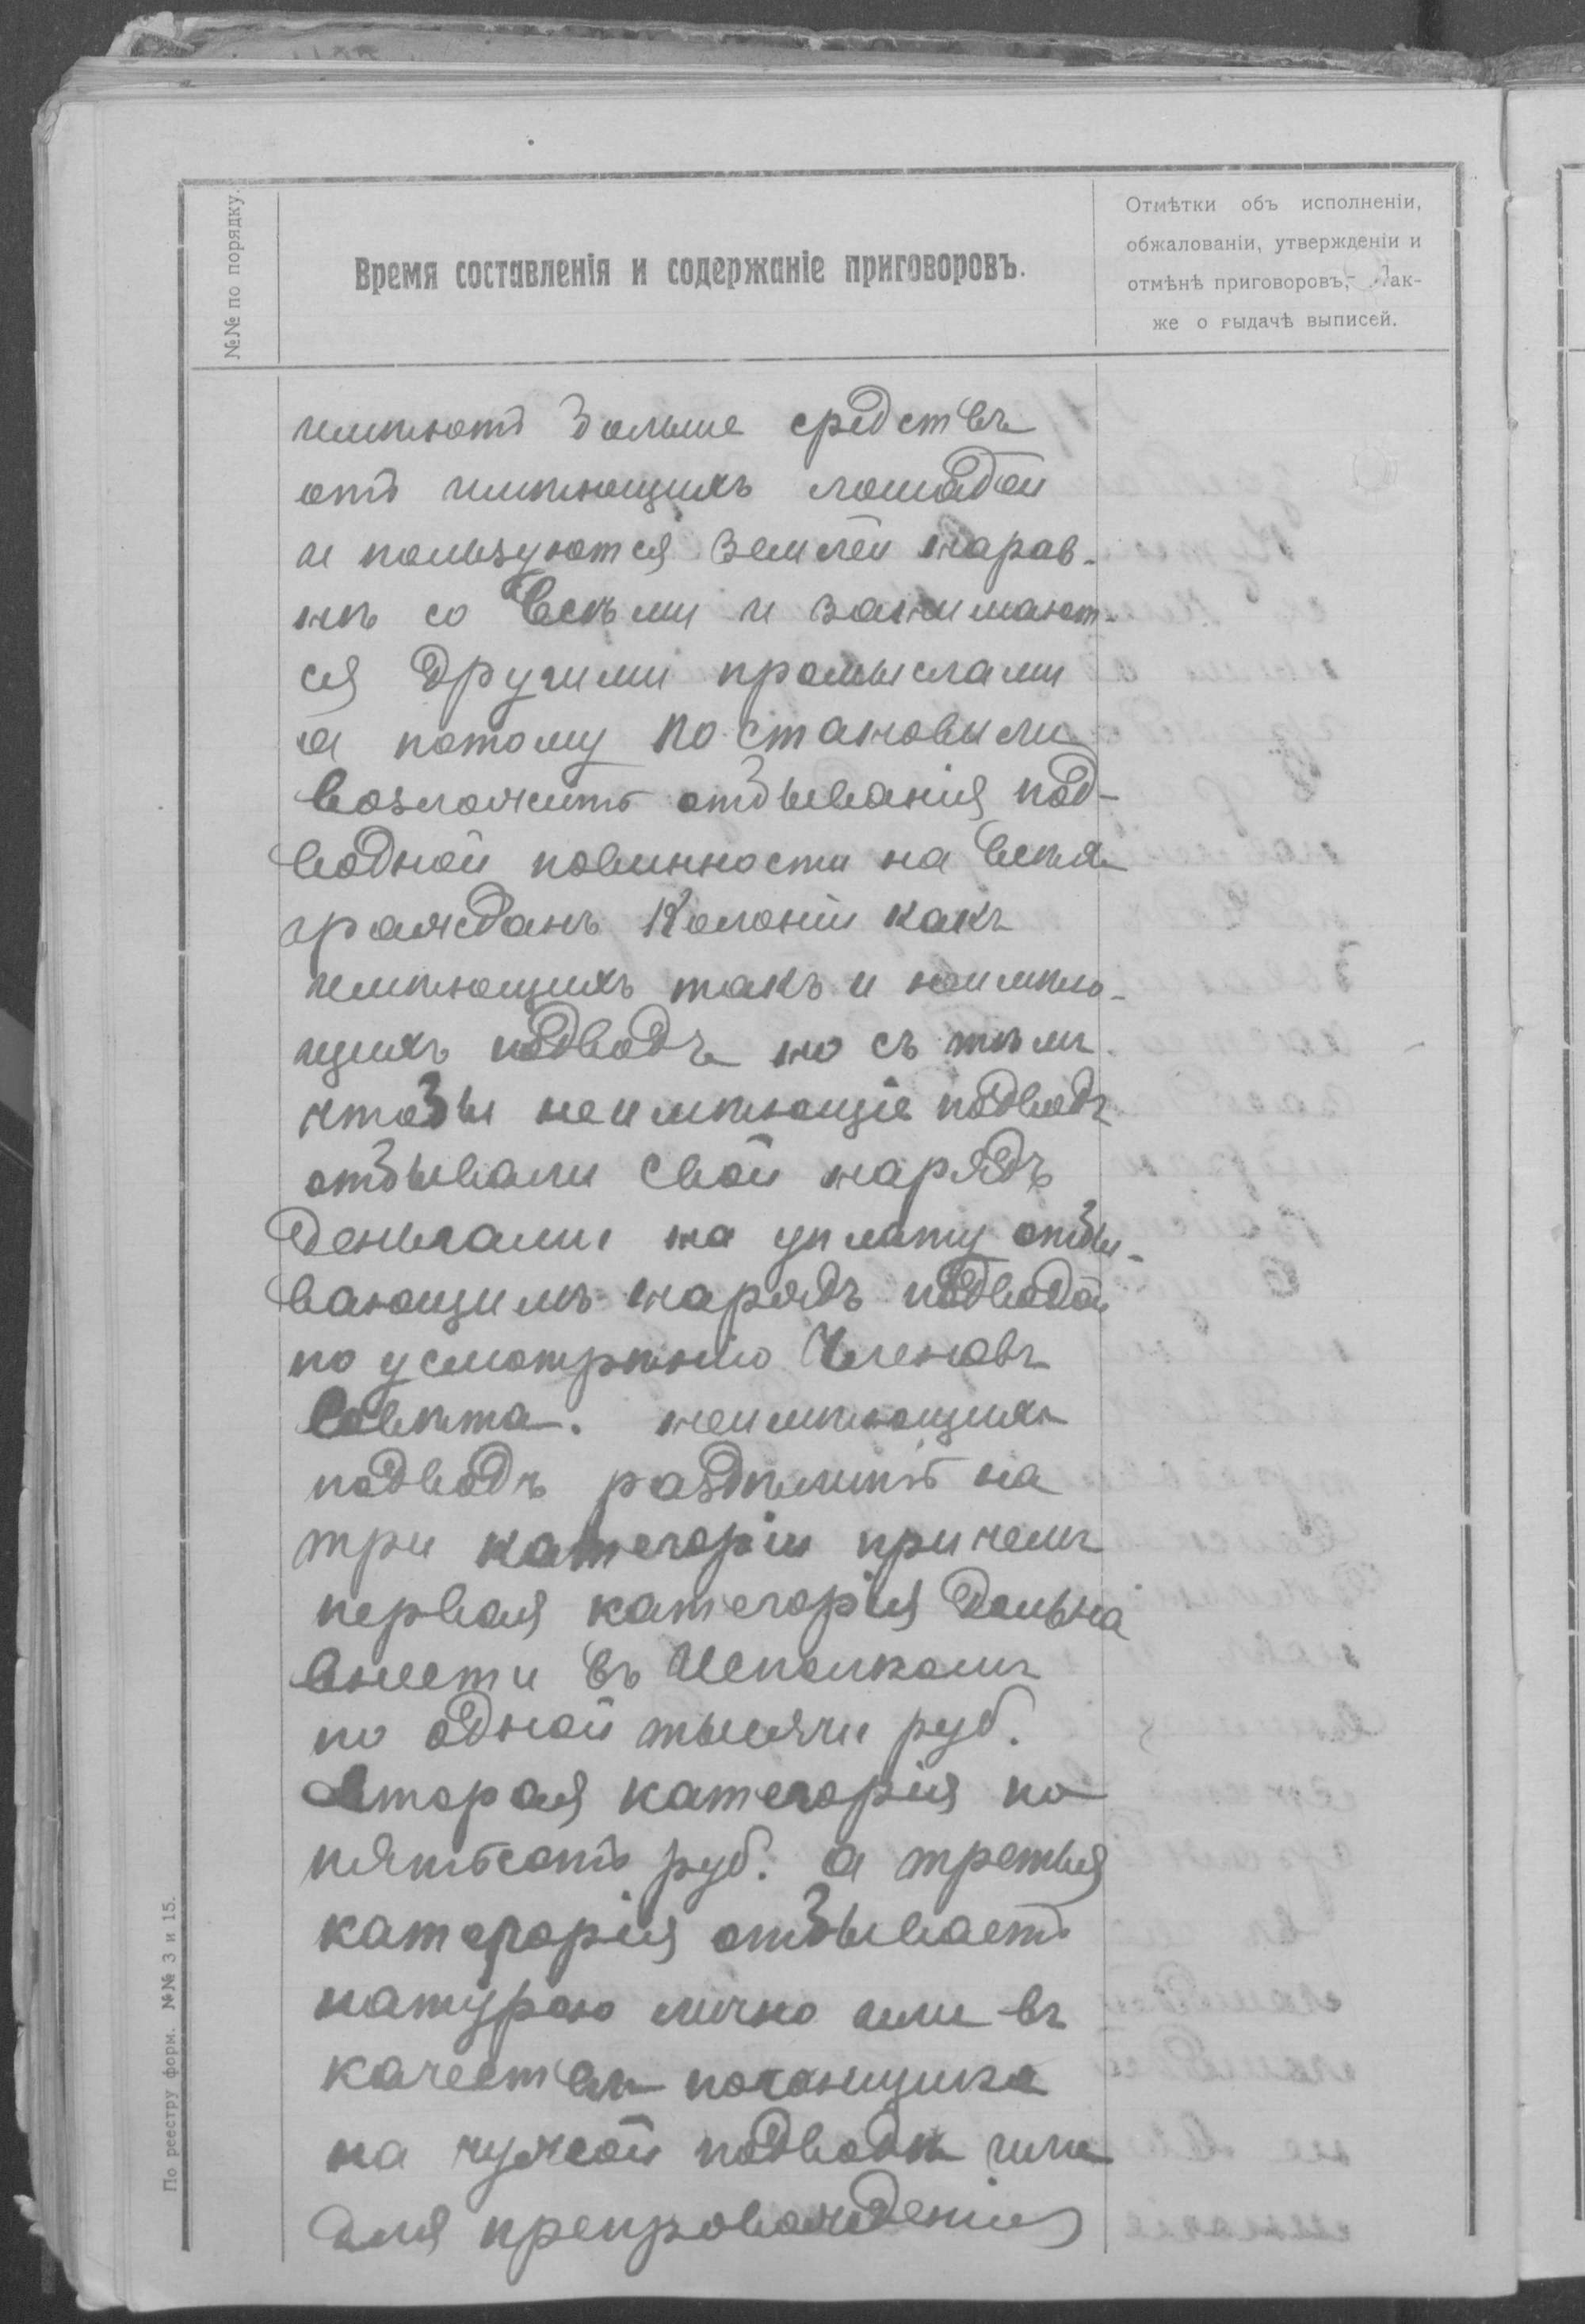 №№ по порядку.
Время составленія и содержаніе приговоровъ.
Отмѣтки объ исполненіи,
обжалованіи, утвержденіи и
отмѣнѣ приговоровъ, так-
же о выдачѣ выписей.
имѣютъ больше средствъ
отъ имѣющихъ лошадей
и пользуются землей нарав-
нѣ со всѣми и занимают-
ся другими промыслами
а потому постановили
возложить отбыванія под-
водной повинности на всѣхъ
гражданъ Колоніи какъ
имѣющихъ такъ и неимѣю-
щихъ подводъ но съ тѣмъ
чтобы неимѣющіе подводъ
отбывали свой нарядъ
деньгами на уплату отбы-
вающимъ нарядъ подводой
по усмотрѣнію Членовъ
Совѣта. неимѣющихъ
подводъ раздѣлить на
три категоріи причемъ
первая категорія дольна
внести въ Исполкомъ
по одной тысячи руб.
Вторая категорія по
пятьсотъ руб. а третья
категорія отбываетъ
натурою лично или въ
качествѣ погонщика
на чужой подводѣ или
для препровожденія
По реестру форм. №№ 3 и 15.